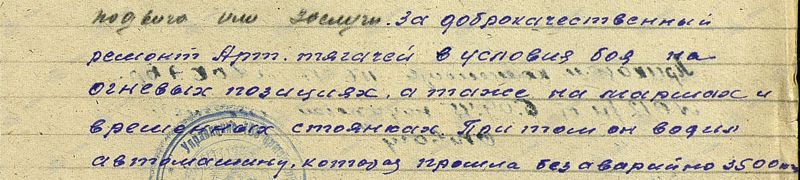 подвига или заслуги. За доброкачественный
ремонт Арт. тягачей в условия боя на
огневых позициях, а таже на маршах и
временных стоянках. При том он водил
автомашину, которая прошла без аварийно 3500 км